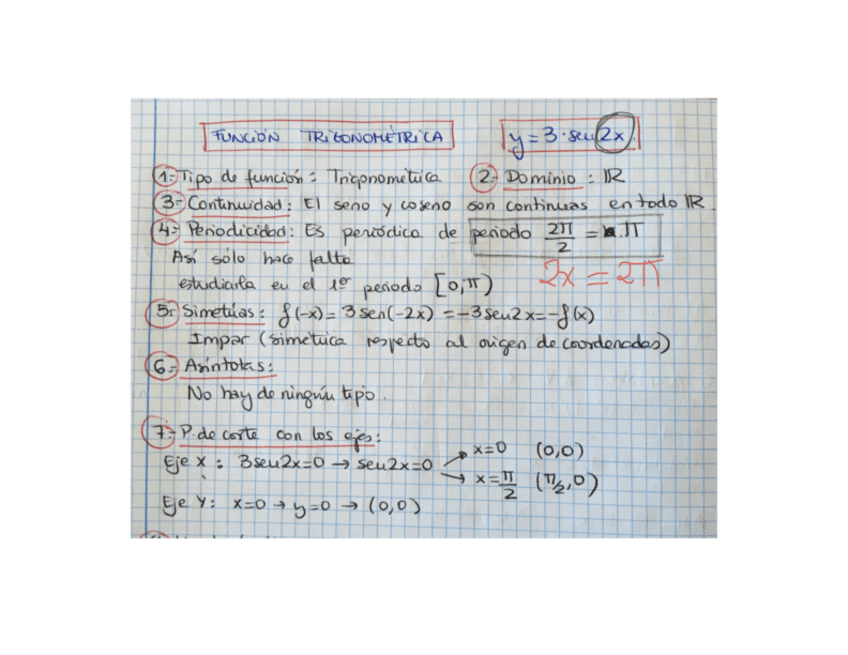 FUNCIÓN TRIGONOMÉTRICA y = 3·sen 2x
1.- Tipo de función: Trigonométrica 2.- Dominio: ℝ
3.- Continuidad: El seno y coseno son continuas en todo ℝ.
4.- Periodicidad: Es periódica de periodo 2π/2 = π
Así sólo hace falta
estudiarla en el 1er periodo [0,π)
2x = 2π
5.- Simetrías: f(-x) = 3 sen(-2x) = -3 sen 2x = -f(x)
Impar (simétrica respecto al origen de coordenadas)
6.- Asíntotas:
No hay de ningún tipo.
7.- P. de corte con los ejes:
Eje X: 3 sen 2x = 0 → sen 2x = 0 → x=0 (0,0)
→ x = π/2 (π/2, 0)
Eje Y: x=0 → y=0 → (0,0)